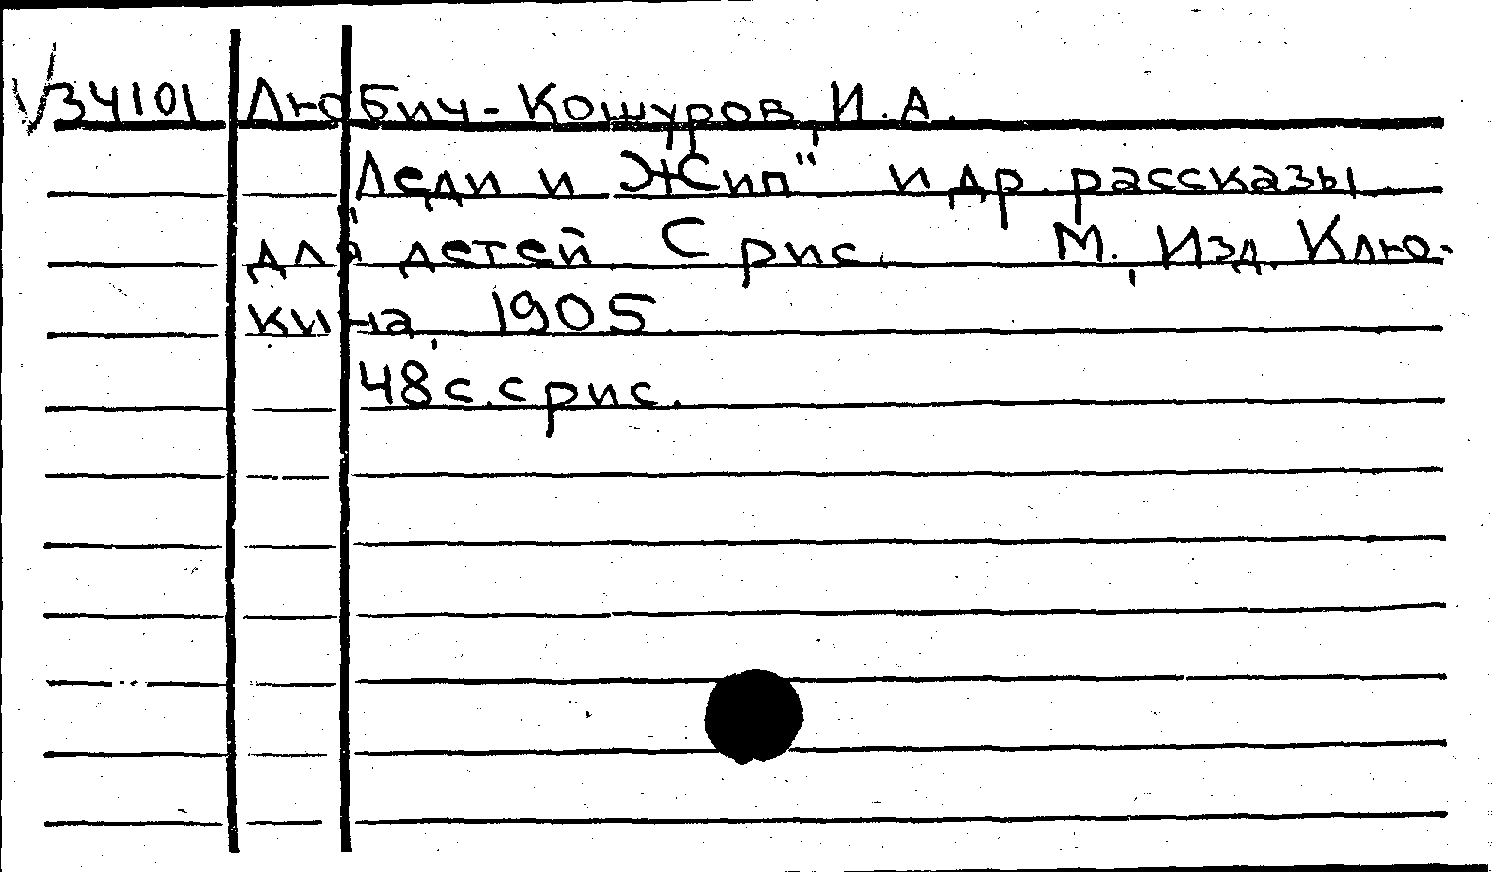 34101 Любич-Кошуров, И.А.
"Леди и Жип" и др. рассказы
для детей С рис. М., Изд. Клю-
кина, 1905.
48 с. с рис.